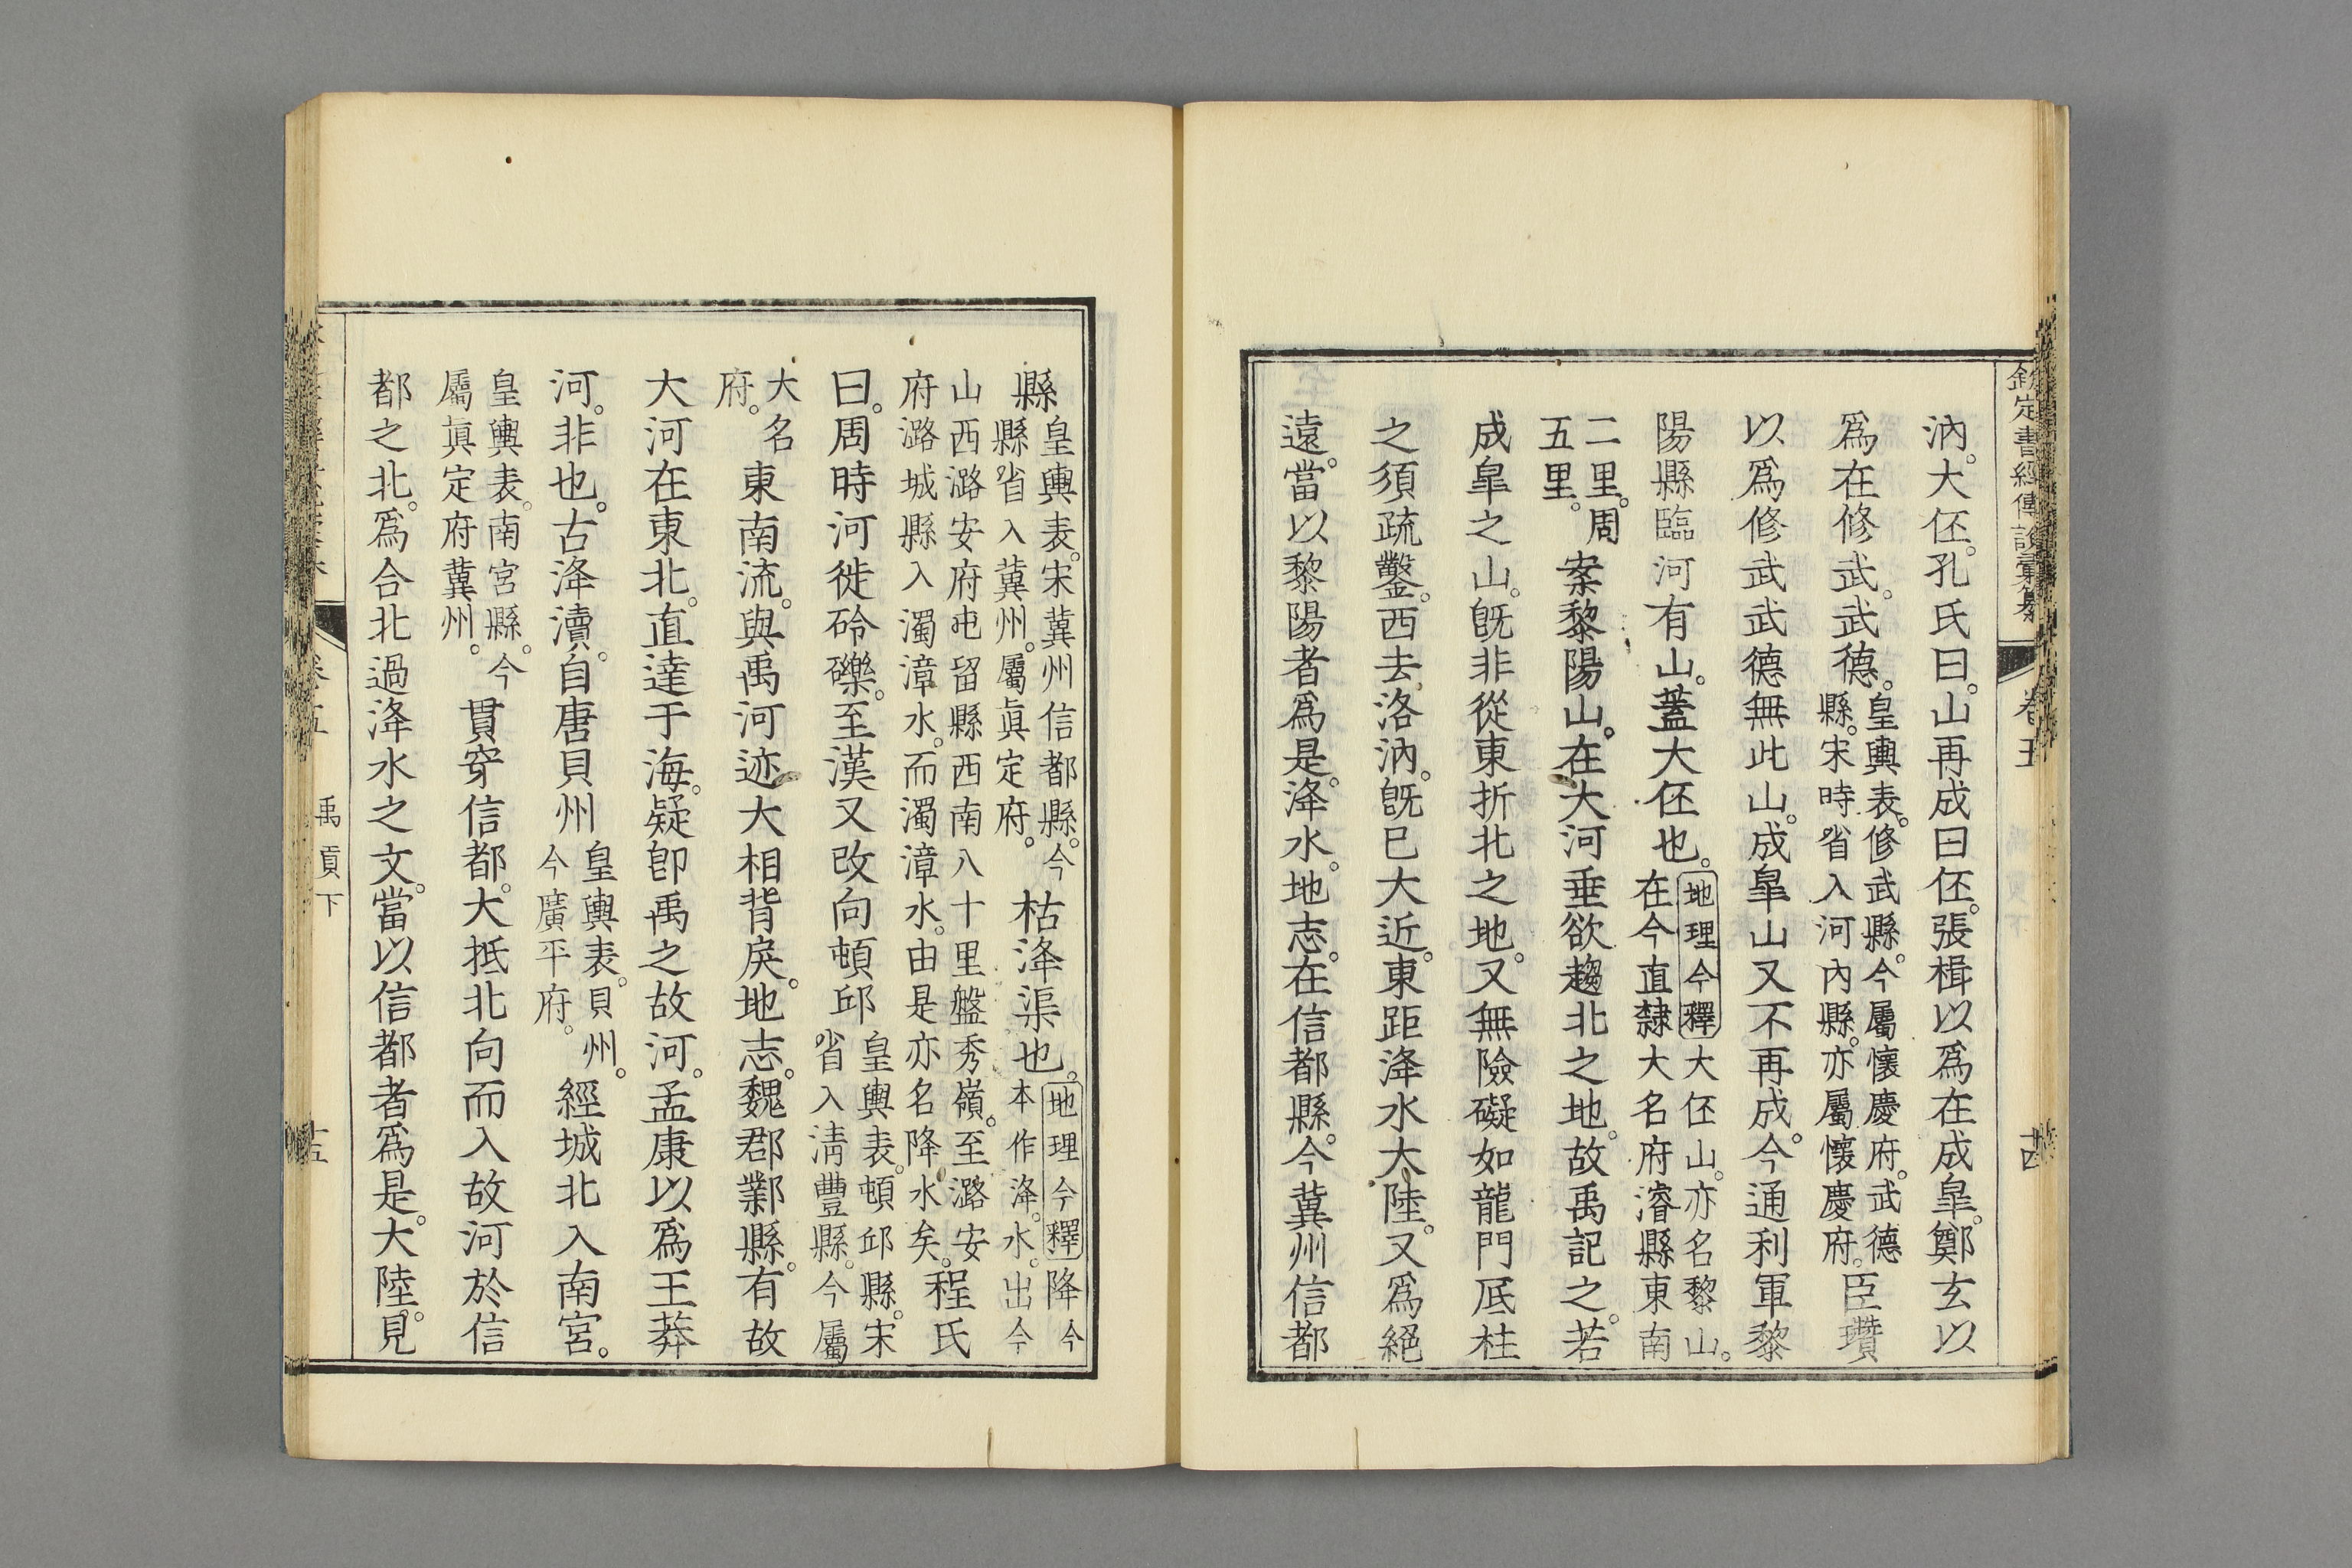 欽定書經傳說彙纂 卷五 十四
汭。大伾。孔氏曰。山再成曰伾。張楫以爲在成皐。鄭玄以
爲在修武。武德。皇輿表。修武縣。今屬懷慶府。武德縣。宋時省入河內縣。亦屬懷慶府。臣瓚
以爲修武武德無此山。成皐山又不再成。今通利軍黎
陽縣臨河有山。蓋大伾也。地理今釋大伾山。亦名黎山。在今直隸大名府濬縣東南
二里。周五里。案黎陽山。在大河垂欲趨北之地。故禹記之。若
成皐之山。旣非從東折北之地。又無險礙如龍門底柱
之須疏鑿。西去洛汭。旣已大近。東距洚水大陸。又爲絕
遠。當以黎陽者爲是。洚水。地志。在信都縣。今冀州信都
縣皇輿表。宋冀州信都縣。今縣省入冀州。屬眞定府。枯洚渠也。地理今釋降今本作洚。水。出今
山西潞安府屯留縣西南八十里盤秀嶺。至潞安府潞城縣入濁漳水。而濁漳水。由是亦名降水矣。程氏
曰。周時河徙砱礫。至漢又改向頓邱皇輿表。頓邱縣。宋省入淸豐縣。今屬
大名府。東南流。與禹河迹大相背戾。地志。魏郡鄴縣。有故
大河在東北。直達于海。疑卽禹之故河。孟康以爲王莽
河。非也。古洚瀆。自唐貝州皇輿表。貝州。今廣平府。經城北入南宮。
皇輿表。南宮縣。今屬眞定府冀州。貫穿信都。大抵北向而入故河於信
都之北。爲合北過洚水之文。當以信都者爲是。大陸。見
卷五 禹貢下 十五